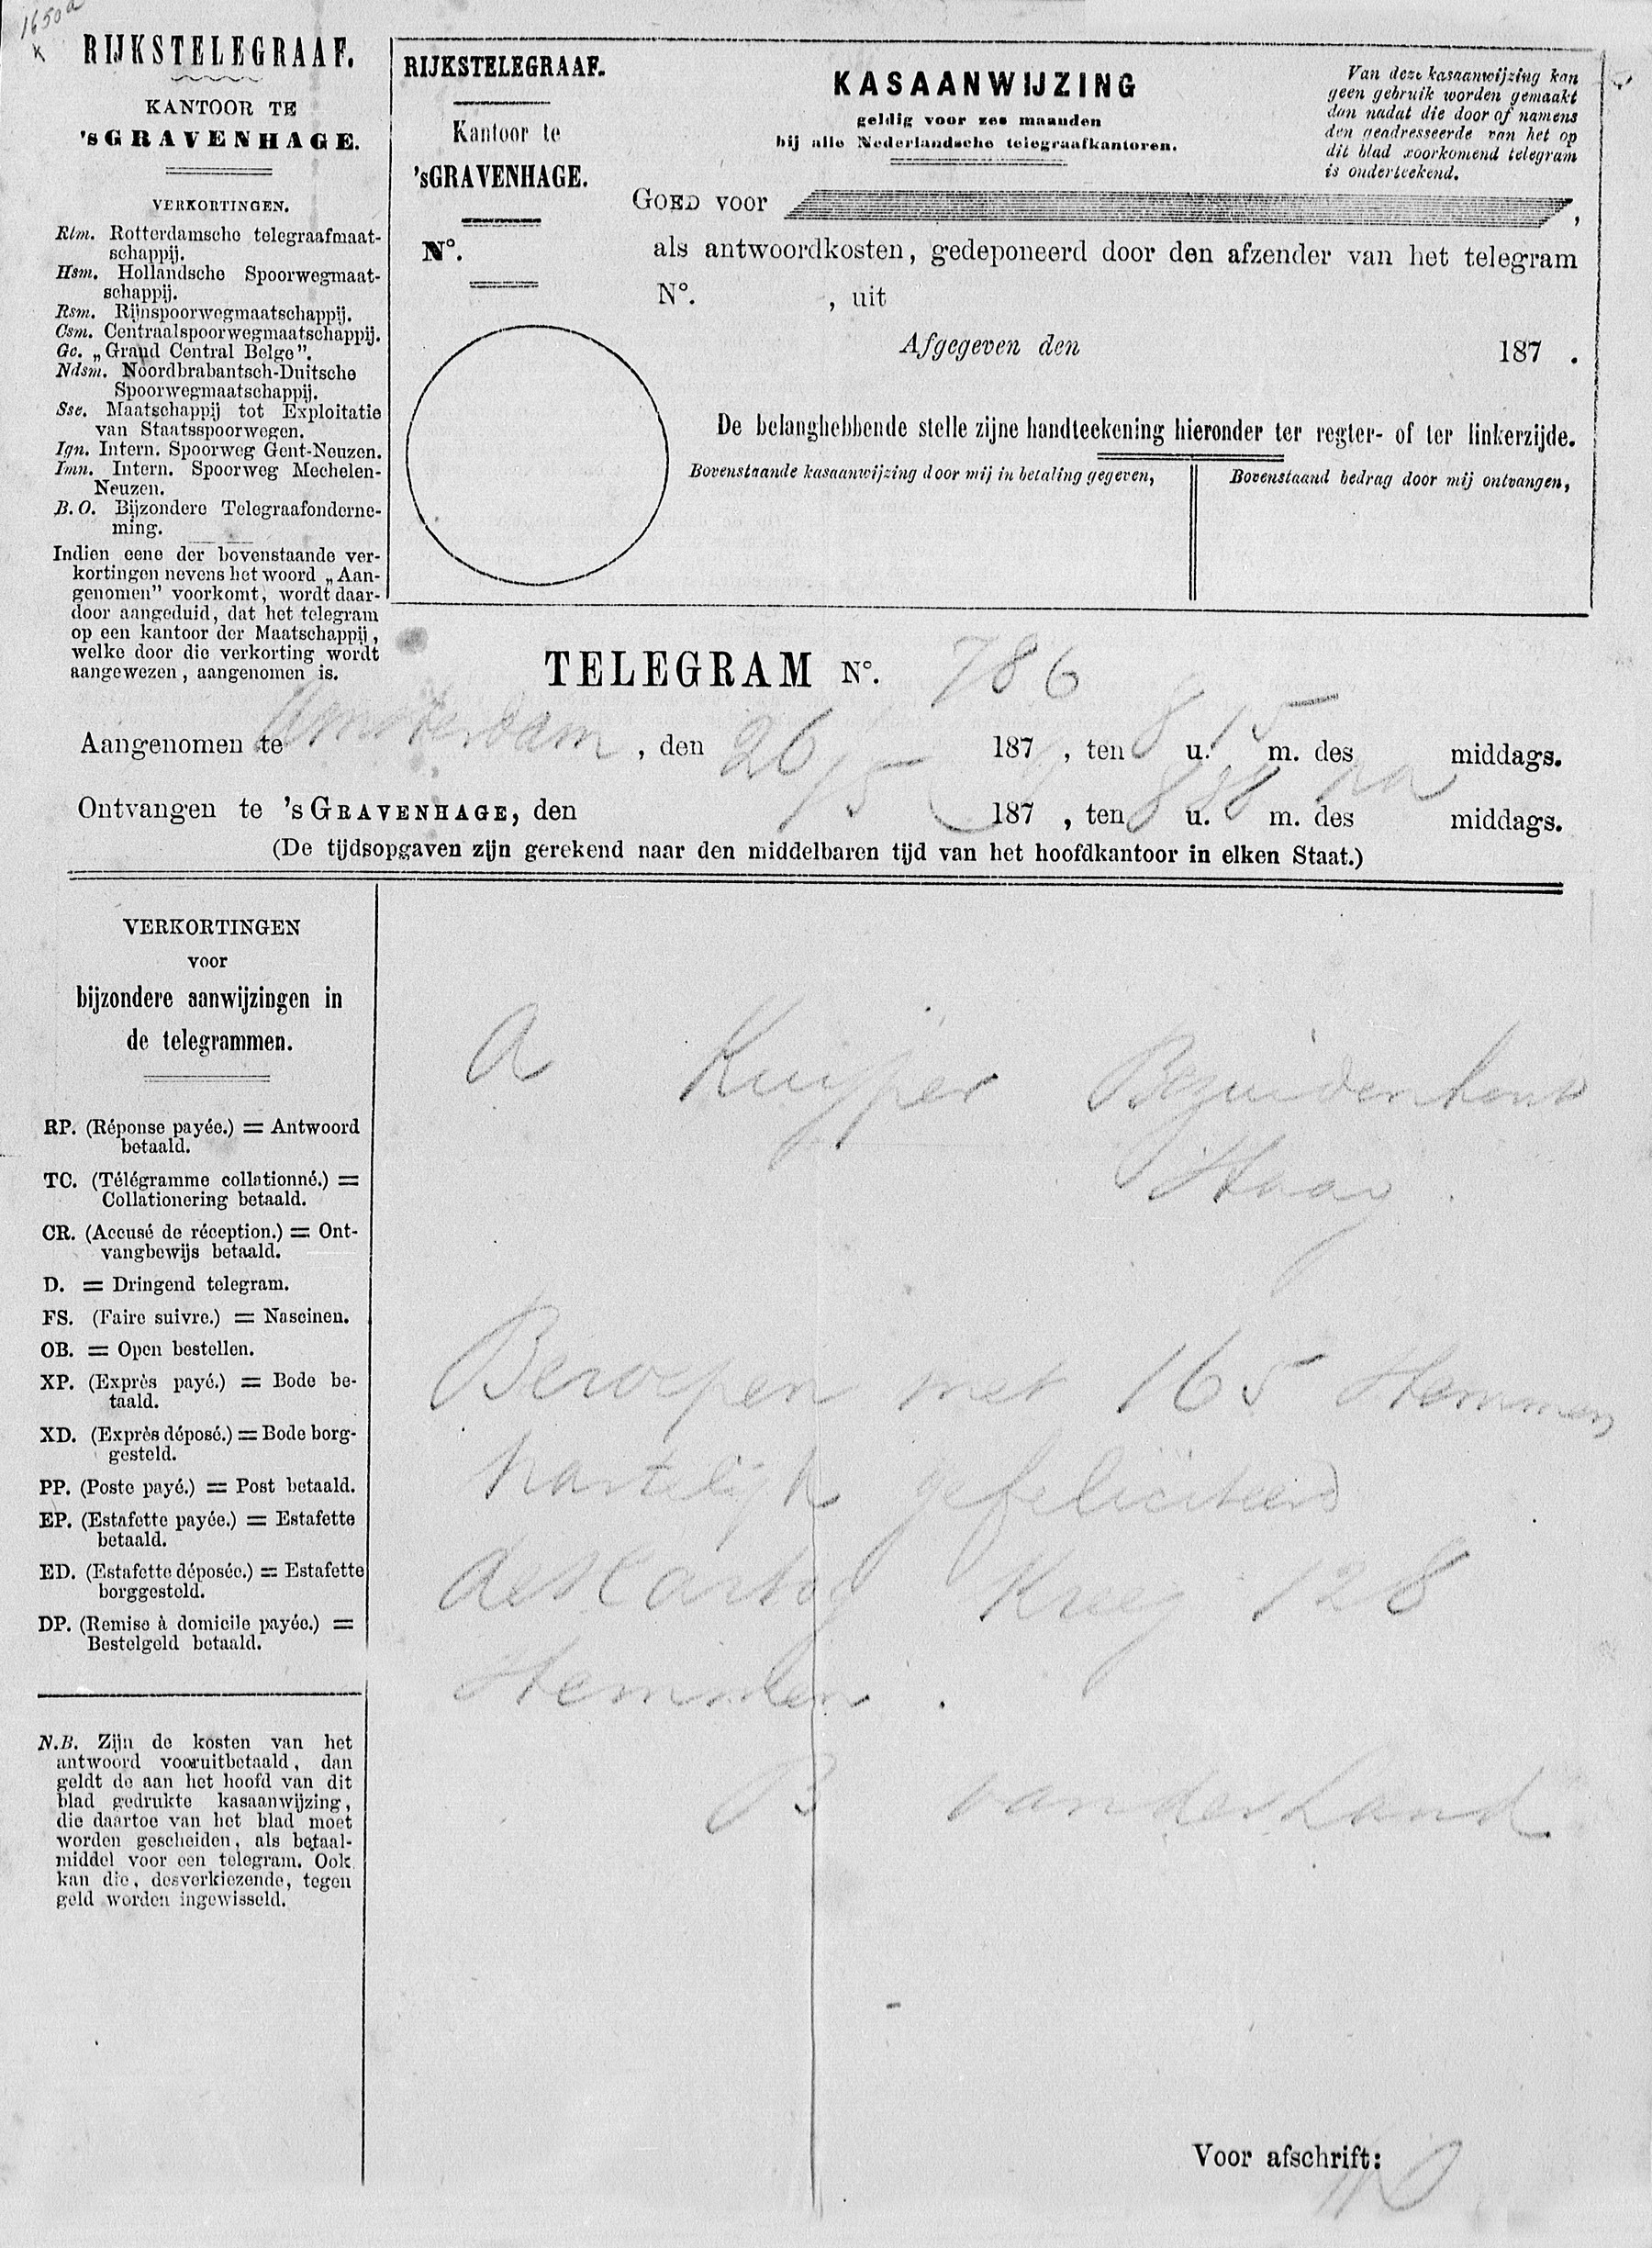 1650a
K
RIJKSTELEGRAAF.
KANTOOR TE
'sGRAVENHAGE.
VERKORTINGEN.
Rtm. Rotterdamsche telegraafmaat-
schappij.
Hsm. Hollandsche Spoorwegmaat-
schappij.
Rsm. Rijnspoorwegmaatschappij.
Csm. Centraalspoorwegmaatschappij.
Gc. „Grand Central Belge”.
Ndsm. Noordbrabantsch-Duitsche
Spoorwegmaatschappij.
Sse. Maatschappij tot Exploitatie
van Staatsspoorwegen.
Ign. Intern. Spoorweg Gent-Neuzen.
Imn. Intern. Spoorweg Mechelen-
Neuzen.
B.O. Bijzondere Telegraafonderne-
ming.
Indien eene der bovenstaande ver-
kortingen nevens het woord „Aan-
genomen” voorkomt, wordt daar-
door aangeduid, dat het telegram
op een kantoor der Maatschappij,
welke door die verkorting wordt
aangewezen, aangenomen is.
RIJKSTELEGRAAF.
Kantoor te
'sGRAVENHAGE.
N°.
KASAANWIJZING
geldig voor zes maanden
bij alle Nederlandsche telegraafkantoren.
Van deze kasaanwijzing kan
geen gebruik worden gemaakt
dan nadat die door of namens
den geadresseerde van het op
dit blad voorkomend telegram
is onderteekend.
GOED voor ,
als antwoordkosten, gedeponeerd door den afzender van het telegram
N°. , uit
Afgegeven den 187 .
De belanghebbende stelle zijne handteekening hieronder ter regter- of ter linkerzijde.
Bovenstaande kasaanwijzing door mij in betaling gegeven,
Bovenstaand bedrag door mij ontvangen,
TELEGRAM N°. 786
Aangenomen te Amsterdam, den 26/5 187 , ten 8 u. 15 m. des middags.
Ontvangen te 'sGRAVENHAGE, den 187 , ten 8 u. 38 m. des na middags.
(De tijdsopgaven zijn gerekend naar den middelbaren tijd van het hoofdkantoor in elken Staat.)
VERKORTINGEN
voor
bijzondere aanwijzingen in
de telegrammen.
RP. (Réponse payée.) = Antwoord
betaald.
TC. (Télégramme collationné.) =
Collationering betaald.
CR. (Accusé de réception.) = Ont-
vangbewijs betaald.
D. = Dringend telegram.
FS. (Faire suivre.) = Naseinen.
OB. = Open bestellen.
XP. (Exprès payé.) = Bode be-
taald.
XD. (Exprès déposé.) = Bode borg-
gesteld.
PP. (Poste payé.) = Post betaald.
EP. (Estafette payée.) = Estafette
betaald.
ED. (Estafette déposée.) = Estafette
borggesteld.
DP. (Remise à domicile payée.) =
Bestelgeld betaald.
N.B. Zijn de kosten van het
antwoord vooruitbetaald, dan
geldt de aan het hoofd van dit
blad gedrukte kasaanwijzing,
die daartoe van het blad moet
worden gescheiden, als betaal-
middel voor een telegram. Ook
kan die, desverkiezende, tegen
geld worden ingewisseld.
A Kuijper Bezuidenhout
Haag.
Beroepen met 165 stemmen
hartelijk gefeliciteerd
de Hartog kreeg 128
stemmen.
B van des Land
Voor afschrift: